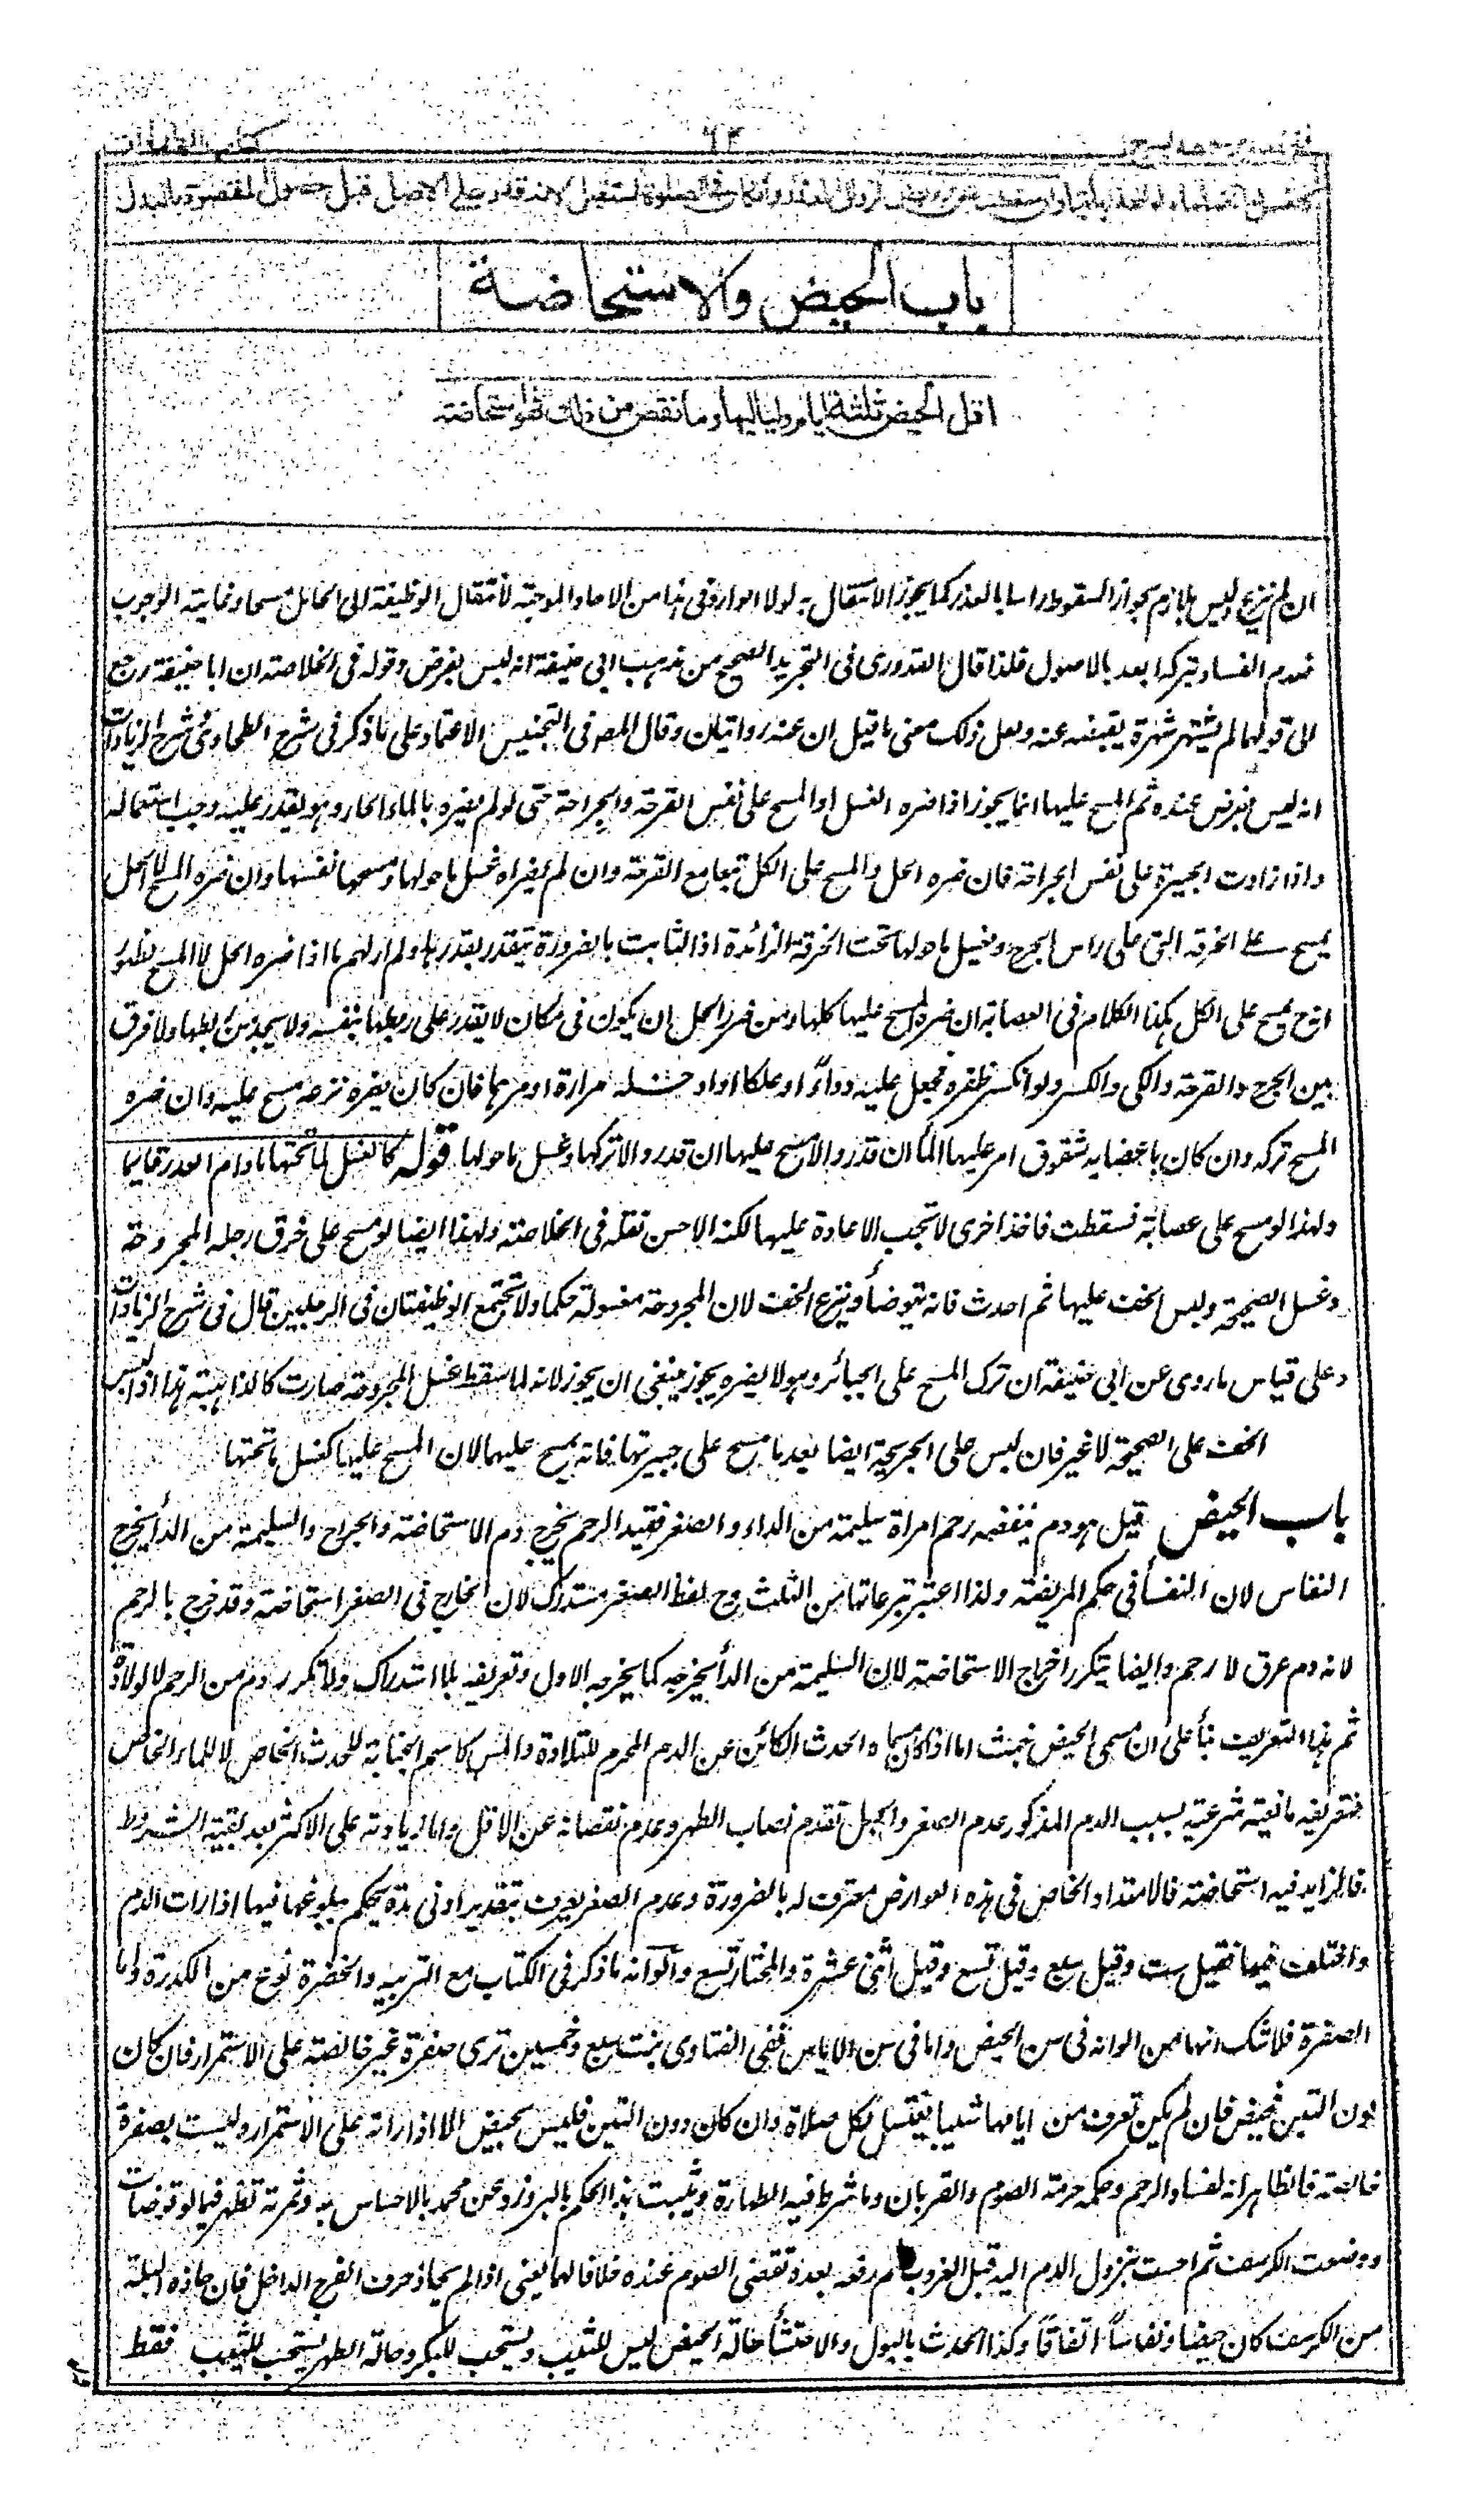 كتاب الطهارات
٦٣
باب الحيض والاستحاضة
اقل الحيض ثلثة ايام ولياليها وما نقص من ذلك فهو استحاضة
ان لم ينزع وليس يلازم بجواز السقوط راسا بالعذر كما يجوز الانتقال به لولا الوارد فى هذا من الاحاد الموجبة لانتقال الوظيفة الى الحائل مسحا ونهاية الوجوب
فعدم الفساد بتركه ابعد بالاصول فلذا قال القدورى فى التجريد الصحيح من مذهب ابى حنيفة انه ليس بفرض وقوله فى الخلاصة ان ابا حنيفة رجع
الى قولهما لم يشتهر شهرة نقيضه عنه ولعل ذلك معنى ما قيل ان عنه روايتان وقال المصـ فى التجنيس الاعتماد على ما ذكر فى شرح الطحاوى وشرح الزيادات
انه ليس بفرض عنده ثم المسح عليها انما يجوز اذا ضره الغسل او المسح على نفس القرحة والجراحة حتى لو لم يضره بالماء الحار وهو يقدر عليه وجب استعماله
واذا زادت الجبيرة على نفس الجراحة فان ضره الحل والمسح على الكل تبعا مع القرحة وان لم يضراه غسل ما حولها ومسحها نفسها وان ضره المسح لا الحل
يمسح على الخرقة التى على راس الجرح ويغسل ما حولها تحت الخرقة الزائدة اذ الثابت بالضرورة يتقدر بقدرها ولم ار لهم ما اذا ضره الحل لا المسح لظهور
انه ح يمسح على الكل هكذا الكلام فى العصابة ان ضره المسح عليها كلها ومن ضرر الحل ان يكون فى مكان لا يقدر على ربطها بنفسه ولا يجد من يربطها ولا فرق
بين الجرح والقرحة والكى والكسر ولو انكسر ظفره فجعل عليه دواء او علكا او ادخله مرارة او مرهما فان كان يضره نزعه مسح عليه وان ضره
المسح تركه وان كان باعضايه شقوق امر عليها الماء ان قدر والا مسح عليها ان قدر والا تركها وغسل ما حولها قوله كالغسل لما تحتها ما دام العذر قائما
ولهذا لو مسح على عصابة فسقطت فاخذ اخرى لا تجب الاعادة عليها لكنه الاحسن نقله فى الخلاصة ولهذا ايضا لو مسح على خرق رجله المجروحة
وغسل الصحيحة ولبس الخف عليها ثم احدث فانه يتوضأ وينزع الخف لان المجروحة مغسولة حكما ولا تجتمع الوظيفتان فى الرجلين قال فى شرح الزيادات
وعلى قياس ما روى عن ابى حنيفة ان ترك المسح على الجبائر وهو لا يضره يجوز ينبغى ان يجوز لانه لما سقط غسل المجروحة صارت كالذاهبة هذا اذا لبس
الخف على الصحيحة لا غير فان لبس على الجريحة ايضا بعد ما مسح على جبيرتها فانه يمسح عليهما لان المسح عليها كغسل ما تحتها
باب الحيض قيل هو دم ينفضه رحم امراة سليمة من الداء والصغر فقيد الرحم يخرج دم الاستحاضة والجراح والسليمة من الدأ يخرج
النفاس لان النفسأ فى حكم المريضة ولذا اعتبر تبرعاتها من الثلث وح لفظ الصغر مستدرك لان الخارج فى الصغر استحاضة وقد خرج بالرحم
لانه دم عرق لا رحم وايضا يتكرر اخراج الاستحاضة لان السليمة من الدأ يخرجه كما يخرجه الاول وتعريفه بلا استدراك ولا تكرر دم من الرحم لا لولادة
ثم هذا التعريف بنأ على ان مسمى الحيض خبث اما اذا كان مسماه الحدث الكائن عن الدم المحرم للتلاوة والمس كاسم الجنابة للحدث الخاص لا للماء الخاص
فتعريفه مانعية شرعية بسبب الدم المذكور عدم الصغر والحبل تقدم نصاب الطهر وعدم نقصانه عن الاقل واما زيادته على الاكثر بعد بقية الشروط
فالزايد فيه استحاضة فالامتداد الخاص فى هذه العوارض معترف له بالضرورة وعدم الصغر يعرف بتقدير ادنى مدة يحكم ببلوغها فيها اذا رات الدم
واختلف فيها فقيل ست وقيل سبع وقيل تسع وقيل اثنى عشرة والمختار تسع والوانه ما ذكر فى الكتاب مع التربية والخضرة نوع من الكدرة واما
الصفرة فلا شك انها من الوانه فى سن الحيض واما فى سن الاياس ففى الفتاوى بنت سبع وخمسين ترى صفرة غير خالصة على الاستمرار فان كان
بون التبن فحيض فان لم يكن تعرف من ايامها شيئا تغتسل لكل صلاة وان كان دون التبن فليس بحيض الا اذا راته على الاستمرار وليست بصفرة
خالصة فالظاهر انه لفساد الرحم وحكمه حرمة الصوم والقربان وما شرط فيه الطهارة ويثبت هذا الحكم بالبروز وعن محمد بالاحساس به وثمرته تظهر فيما لو توضات
ووضعت الكرسف ثم احست بنزول الدم اليه قبل الغروب ثم رفعه بعده تقضى الصوم عنده خلافا لهما يعنى اذا لم يحاذ حرف الفرج الداخل فان حاذه البلة
من الكرسف كان حيضا ونفاسا اتفاقا وكذا الحدث بالبول والاحتشأ حالة الحيض ليس للثيب ويستحب للبكر وحالة الطهر يستحب للثيب فقط